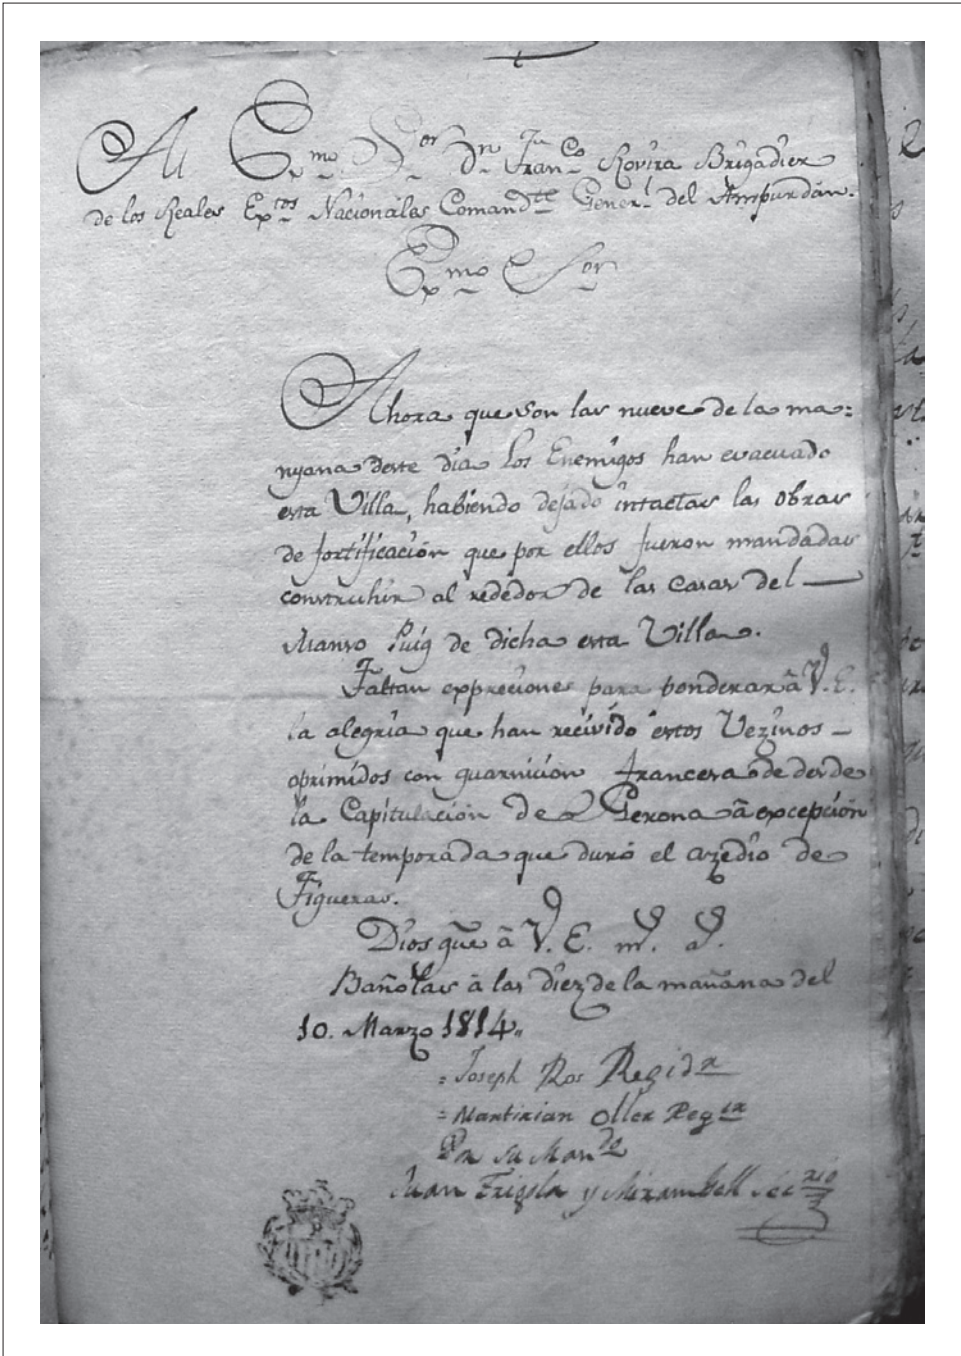 Al Exmo Sor Dn Franco Rovira Brigadier
de los Reales Extos Nacionáles Comandte Generl del Ampurdán.
Exmo Sor
Ahora que son las nueve de la ma=
nyana deste dia los Enemigos han evacuado
esta Villa, habiendo dejado intactas las obras
de fortificación que por ellos fueron mandadas
construhir al rededor de las casas del
Manso Puig de dicha esta Villa.
Faltan expreciones para ponderar â V. E.
la alegria que han recivido estos Vezinos
oprimidos con guarnición francesa de desde
la Capitulación de Gerona â excepción
de la temporáda que duró el azedio de
Figueras.
Dios gũe â V. E. m.s a.s
Bañolas â las diez de la mañana del
10. Marzo 1814.
= Joseph Ros Regidr
= Martirian Oller Regor
Por su Mando
Juan Frigola y Mirambell Sècrio